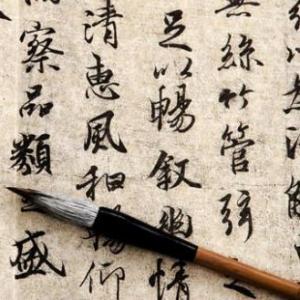 無絲竹管弦之
足以暢叙幽情
清惠風和暢仰
察品類之盛